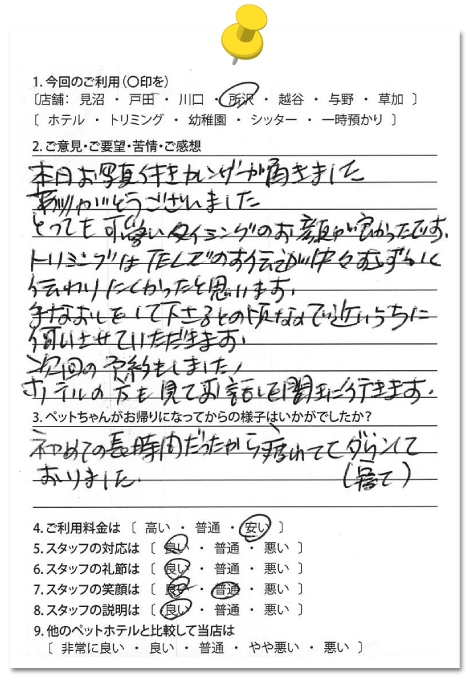 1. 今回のご利用(〇印を)
〔店舗： 見沼 ・ 戸田 ・ 川口 ・ 所沢 ・ 越谷 ・ 与野 ・ 草加 〕
〔 ホテル ・ トリミング ・ 幼稚園 ・ シッター ・ 一時預かり 〕
2. ご意見・ご要望・苦情・ご感想
本日お写真付きカレンダーが届きました
ありがとうございました
とっても可愛いタイミングのお顔が良かったです。
トリミングはTELでのお伝えが中々むずかしく
伝わりにくかったと思います。
手なおしをして下さるとの事なので近いうちに
伺いさせていただきます。
次回の予約もしました！
ホテルの方も見てお話しを聞きに行きます。
3. ペットちゃんがお帰りになってからの様子はいかがでしたか？
初めての長時間だったから、疲れててダウンして
おりました。 (寝て)
4. ご利用料金は 〔 高い ・ 普通 ・ 安い 〕
5. スタッフの対応は 〔 良い ・ 普通 ・ 悪い 〕
6. スタッフの礼節は 〔 良い ・ 普通 ・ 悪い 〕
7. スタッフの笑顔は 〔 良い ・ 普通 ・ 悪い 〕
8. スタッフの説明は 〔 良い ・ 普通 ・ 悪い 〕
9. 他のペットホテルと比較して当店は
〔 非常に良い ・ 良い ・ 普通 ・ やや悪い ・ 悪い 〕